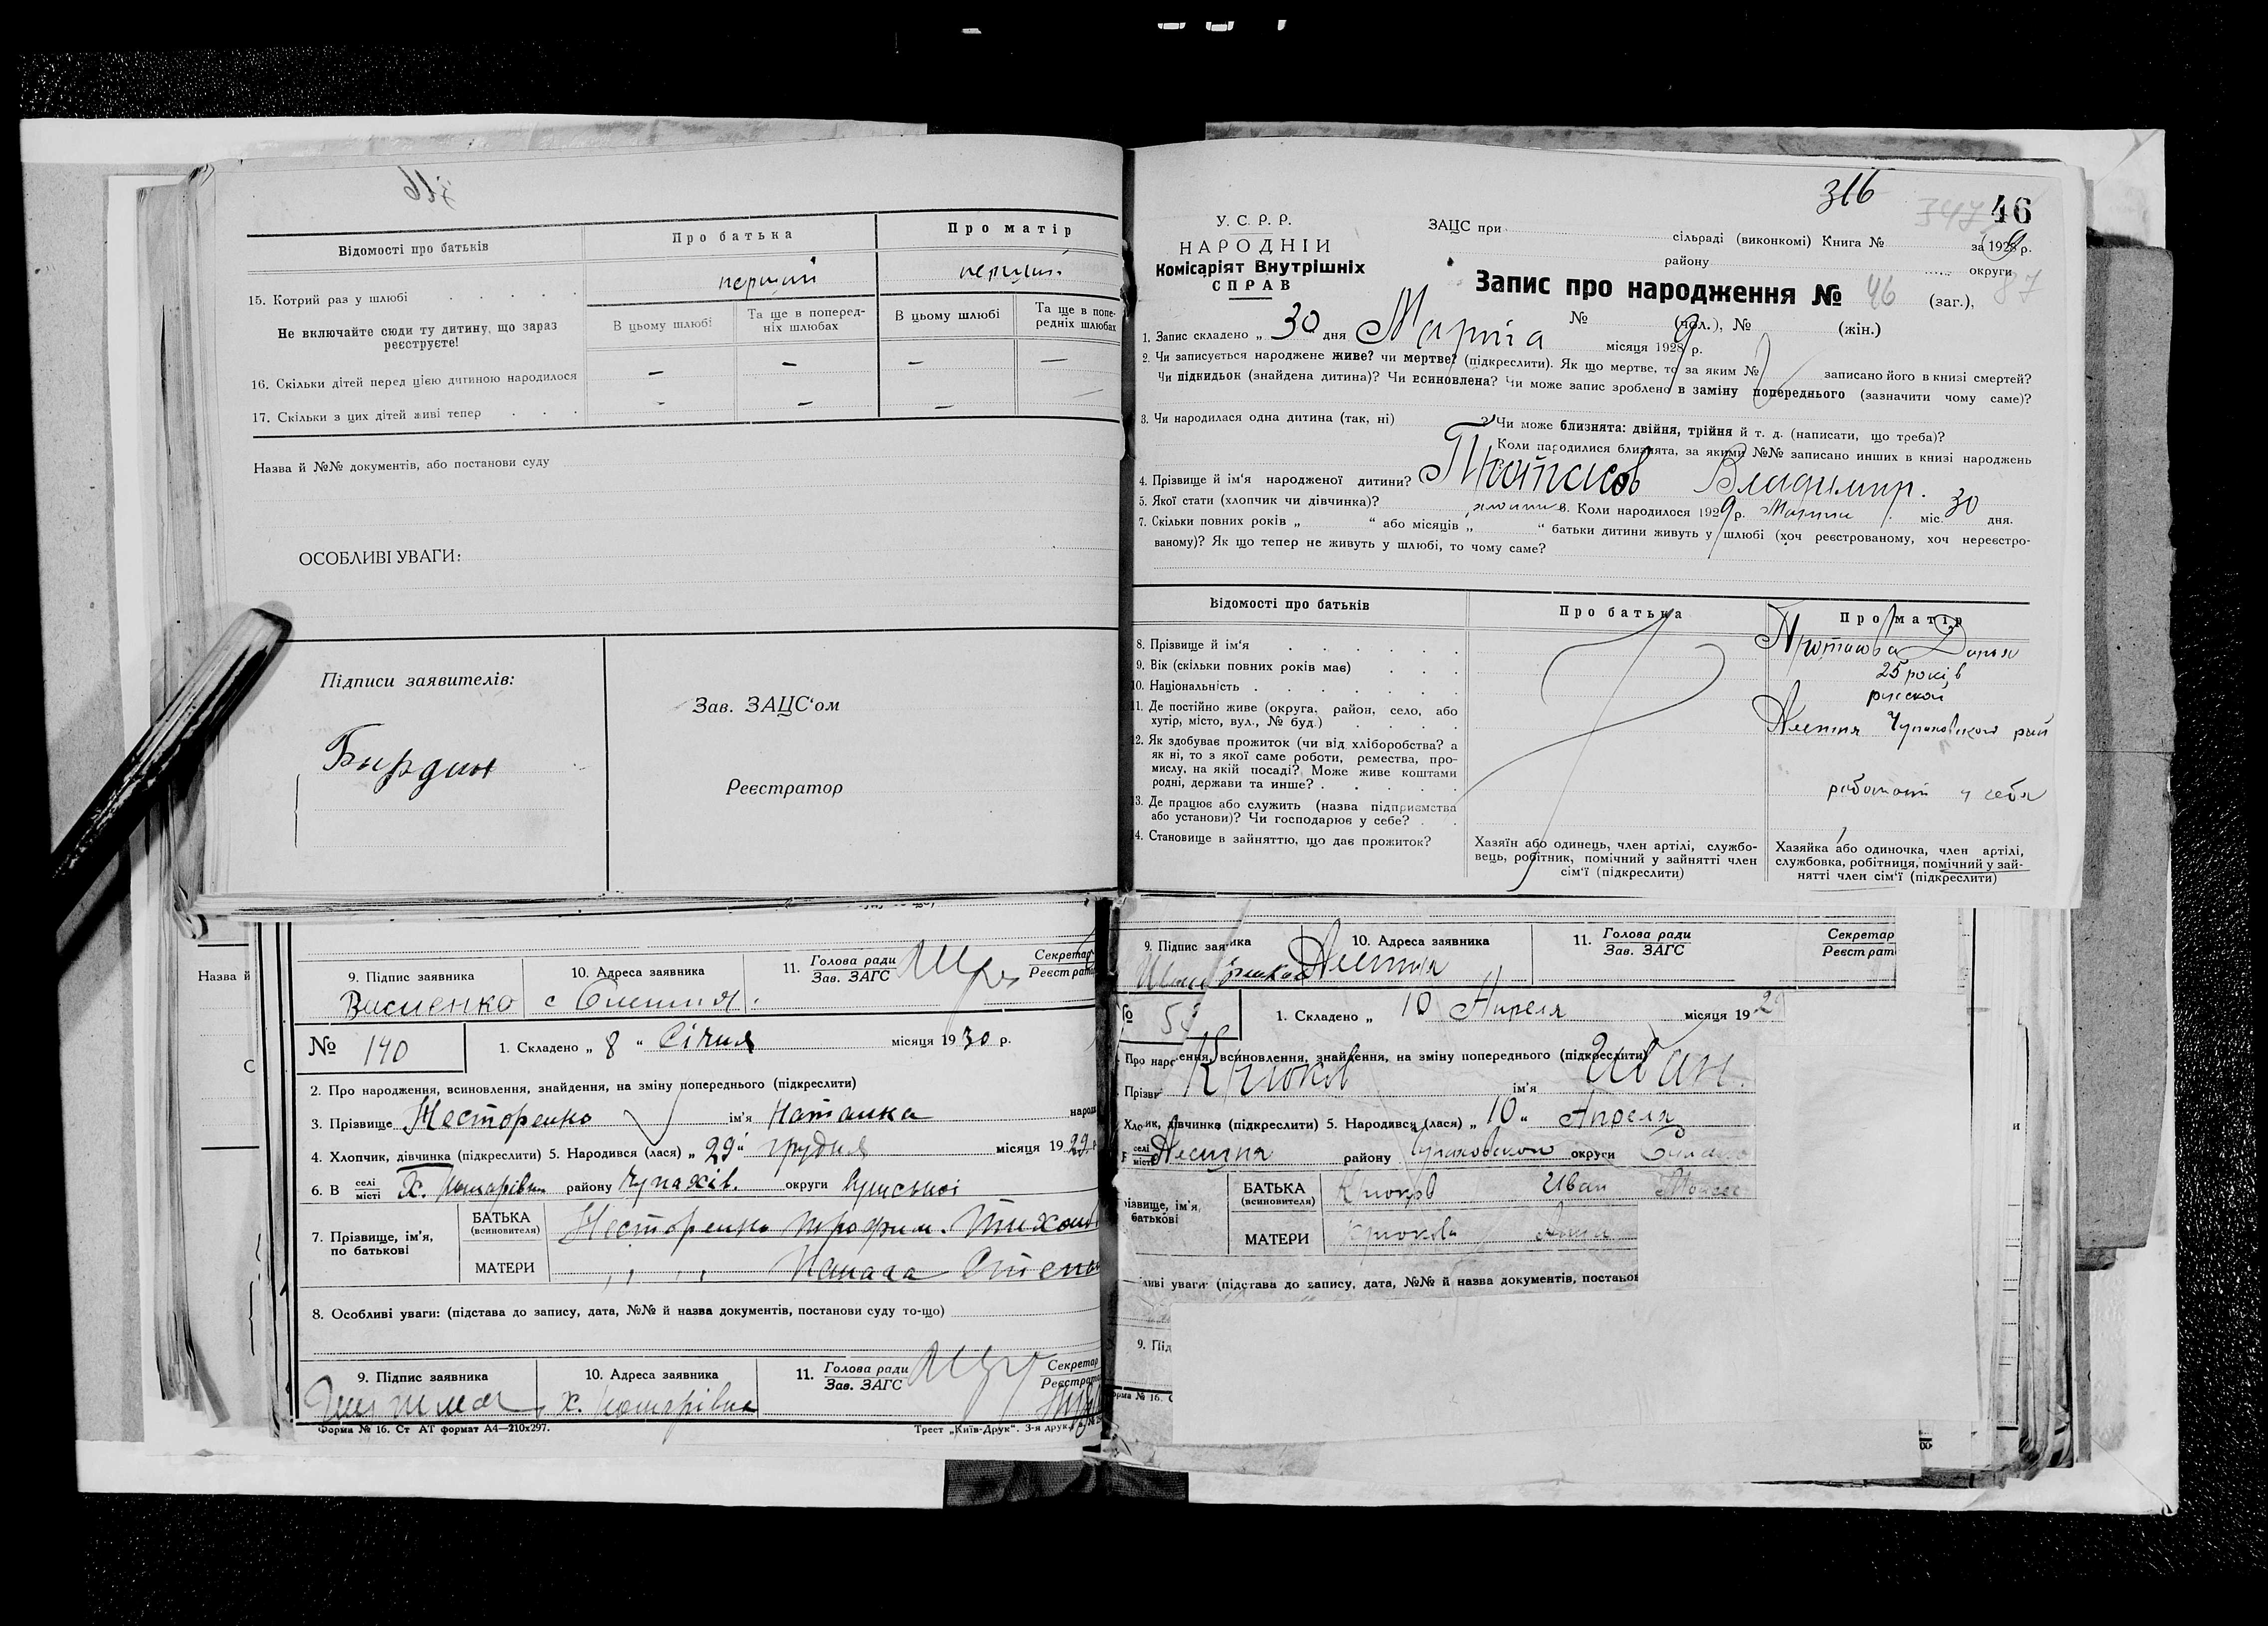 Відомості про батьків
Про батька
Про матір
15. Котрий раз у шлюбі
перший
перший
Не включайте сюди ту дитину, що зараз реєструєте!
В цьому шлюбі
Та ще в поперед-
ніх шлюбах
В цьому шлюбі
Та ще в попе-
редніх шлюбах
16. Скільки дітей перед цією дитиною народилося
— — — —
17. Скільки з цих дітей живі тепер
- — — —
Назва й №№ документів, або постанови суду
ОСОБЛИВІ УВАГИ:
Підписи заявителів:
Зав. ЗАЦС'ом
Реєстратор
316
46
У. С. Р. Р.
НАРОДНІЙ
Комісаріят Внутрішніх
СПРАВ
ЗАЦС при сільраді (виконкомі) Книга № за 1929 р.
району округи
87
Запис про народження № 46 (заг.),
№ (чол.), № (жін.)
1. Запис складено „ 30 дня Марта місяця 1929 р.
2. Чи записується народжене живе? чи мертве? (підкреслити). Як що мертве, то за яким № записано його в книзі смертей?
Чи підкидьок (знайдена дитина)? Чи всиновлена? Чи може запис зроблено в заміну попереднього (зазначити чому саме)?
3. Чи народилася одна дитина (так, ні) ? Чи може близнята: двійня, трійня й т. д. (написати, що треба)?
Коли народилися близнята, за якими №№ записано инших в книзі народжень
4. Прізвище й ім'я народженої дитини? Протасов Владимир.
5. Якої стати (хлопчик чи дівчинка)? 6. Коли народилося 1929 р. Марта міс. 30 дня.
7. Скільки повних років „ “ або місяців „ “ батьки дитини живуть у шлюбі (хоч реєстрованому, хоч нереєстро-
ваному)? Як що тепер не живуть у шлюбі, то чому саме?
Відомості про батьків
Про батька
Про матір
8. Прізвище й ім'я
Протасова Дарья
9. Вік (скільки повних років має)
25 років
10. Національність
русской
11. Де постійно живе (округа, район, село, або
хутір, місто, вул., № буд.)
12. Як здобуває прожиток (чи від хліборобства? а
як ні, то з якої саме роботи, ремества, про-
мислу, на якій посаді? Може живе коштами
родні, держави та инше?
13. Де працює або служить (назва підприємства
або установи)? Чи господарює у себе?
работает у себя
14. Становище в зайняттю, що дає прожиток?
Хазяїн або одинець, член артілі, службо-
вець, робітник, помічний у зайнятті член
сім'ї (підкреслити)
Хазяйка або одиночка, член артілі,
службовка, робітниця, помічний у зай-
нятті член сім'ї (підкреслити)
Назва й
9. Підпис заявника
10. Адреса заявника
11. Голова ради
Зав. ЗАГС
Секретар
Реєстрат
№ 140
1. Складено „ 8 “ Січня місяця 1930 р.
2. Про народження, всиновлення, знайдення, на зміну попереднього (підкреслити)
3. Прізвище Несторенко ім'я Наталка
4. Хлопчик, дівчинка (підкреслити) 5. Народився (лася) „ 29 “ грудня місяця 1929
6. В селі
місті
району Чупахів. округи
7. Прізвище, ім'я,
по батькові
БАТЬКА
(всиновителя)
Несторенко Трофим
МАТЕРИ
8. Особливі уваги: (підстава до запису, дата, №№ й назва документів, постанови суду то-що)
9. Підпис заявника
10. Адреса заявника
11. Голова ради
Зав. ЗАГС
Секретар
Форма № 16. Ст АТ формат А4—210х297.
Трест „Київ-Друк“. 3-я друк.
9. Підпис заявника
10. Адреса заявника
11. Голова ради
Зав. ЗАГС
Секретар
Реєстрат
1. Складено „ 10 Апреля місяця 192
ення, всиновлення, знайдення, на зміну попереднього (підкреслити)
Крюков ім'я Иван.
дівчинка (підкреслити) 5. Народився (лася) „ 10 “ Апреля
району Чупаховского округи
БАТЬКА
(всиновителя)
Крюков Иван
батькові
МАТЕРИ
Крюкова
уваги (підстава до запису, дата, №№ й назва документів, постанов
9. Під